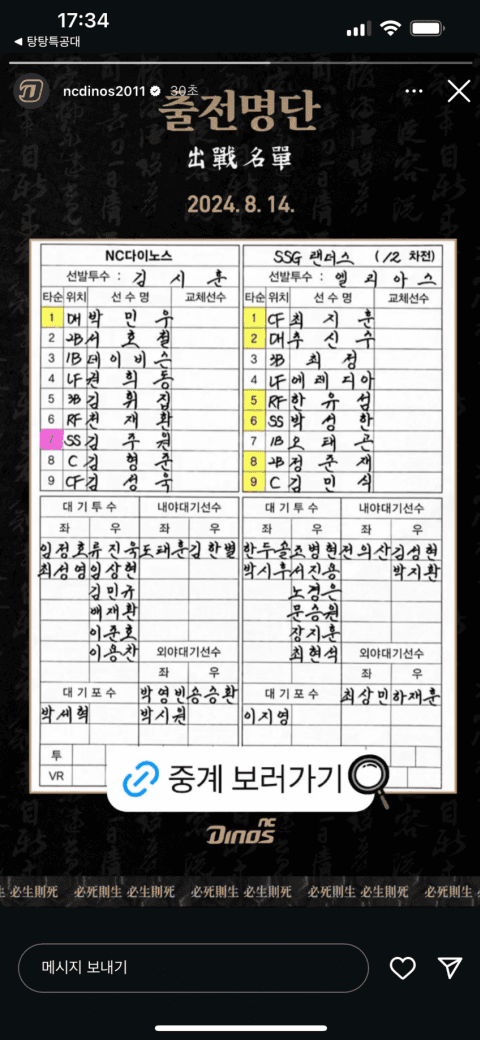 17:34
◀ 탕탕특공대
ncdinos2011 30초
출전명단
出戰名單
2024. 8. 14.
NC다이노스
선발투수 : 김 시 훈
타순 위치 선 수 명 교체선수
1 DH 박 민 우
2 2B 서 호 철
3 1B 데 이 비 슨
4 LF 권 희 동
5 3B 김 휘 집
6 RF 천 재 환
7 SS 김 주 원
8 C 김 형 준
9 CF 김 성 욱
SSG 랜더스 (12 차전)
선발투수 : 엘 리 아 스
타순 위치 선 수 명 교체선수
1 CF 최 지 훈
2 DH 추 신 수
3 3B 최 정
4 LF 에 레 디 아
5 RF 한 유 섬
6 SS 박 성 한
7 1B 오 태 곤
8 2B 정 준 재
9 C 김 민 식
대 기 투 수 내야대기선수
좌 우 좌 우
임정호 류진욱 도태훈 김한별
최성영 임상현
김민규
배재환
이준호
이용찬 외야대기선수
좌 우
대 기 포 수 박영빈 송승환
박세혁 박시원
투
VR
대 기 투 수 내야대기선수
좌 우 좌 우
한두솔 조병현 전의산 김성현
박시후 서진용 박지환
노경은
문승원
장지훈
최현석 외야대기선수
좌 우
대 기 포 수 최상민 하재훈
이지영
중계 보러가기
nc
DINOS
生 必生則死 必死則生 必生則死 必死則生 必生則死 必死則生 必生則死 必死則生
메시지 보내기